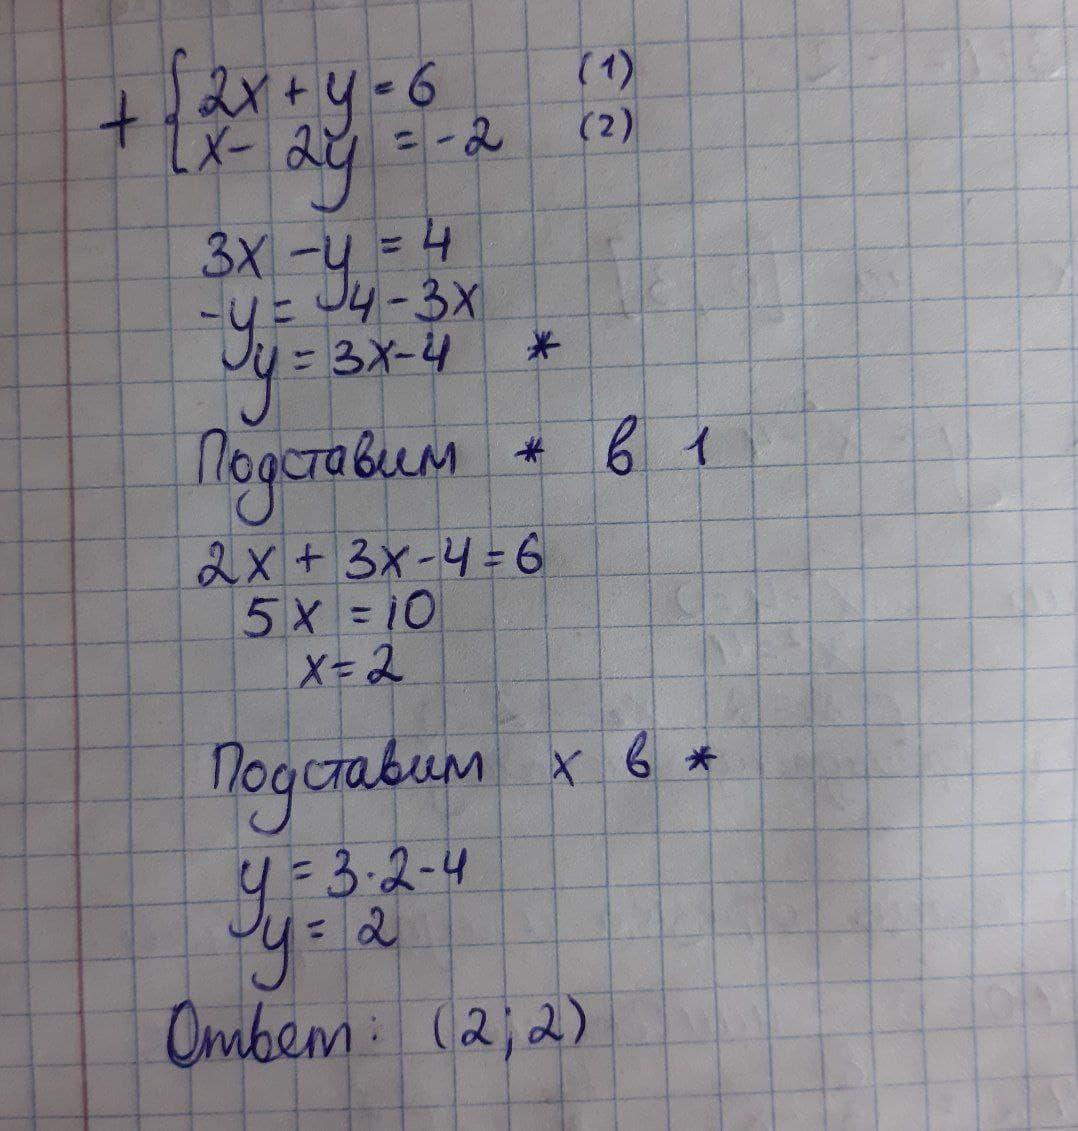 + { 2x + y = 6 (1)
x - 2y = -2 (2)
3x - y = 4
-y = 4 - 3x
y = 3x - 4 *
Подставим * в 1
2x + 3x - 4 = 6
5x = 10
x = 2
Подставим x в *
y = 3·2 - 4
y = 2
Ответ: (2; 2)